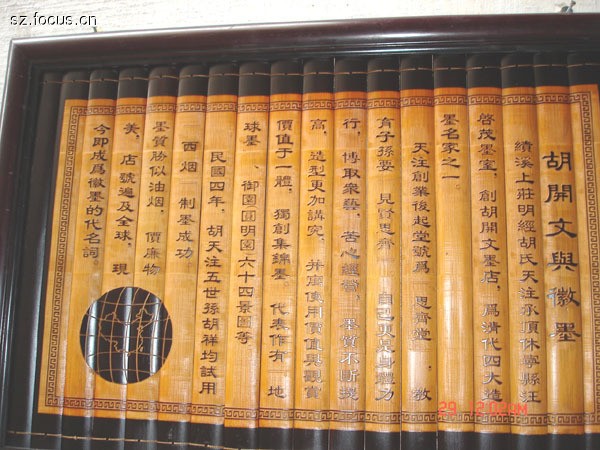 sz.focus.cn
胡開文與徽墨
績溪上莊明經胡氏天注承頂休寧縣汪
啓茂墨室，創胡開文墨店，爲清代四大造
墨名家之一
天注創業後起堂號爲 思齊堂 教
育子孫要 見賢思齊 自己更是身體力
行，博取衆藝，苦心經營，墨質不斷提
高，造型更加講究，并商使用價值與觀賞
價值于一體，獨創集錦墨，代表作有 地
球墨 、御園圓明園六十四景園等
民國四年，胡天注五世孫胡祥均試用
西烟 制墨成功
墨質勝似油烟，價廉物
美，店號遍及全球，現
今即成爲徽墨的代名詞